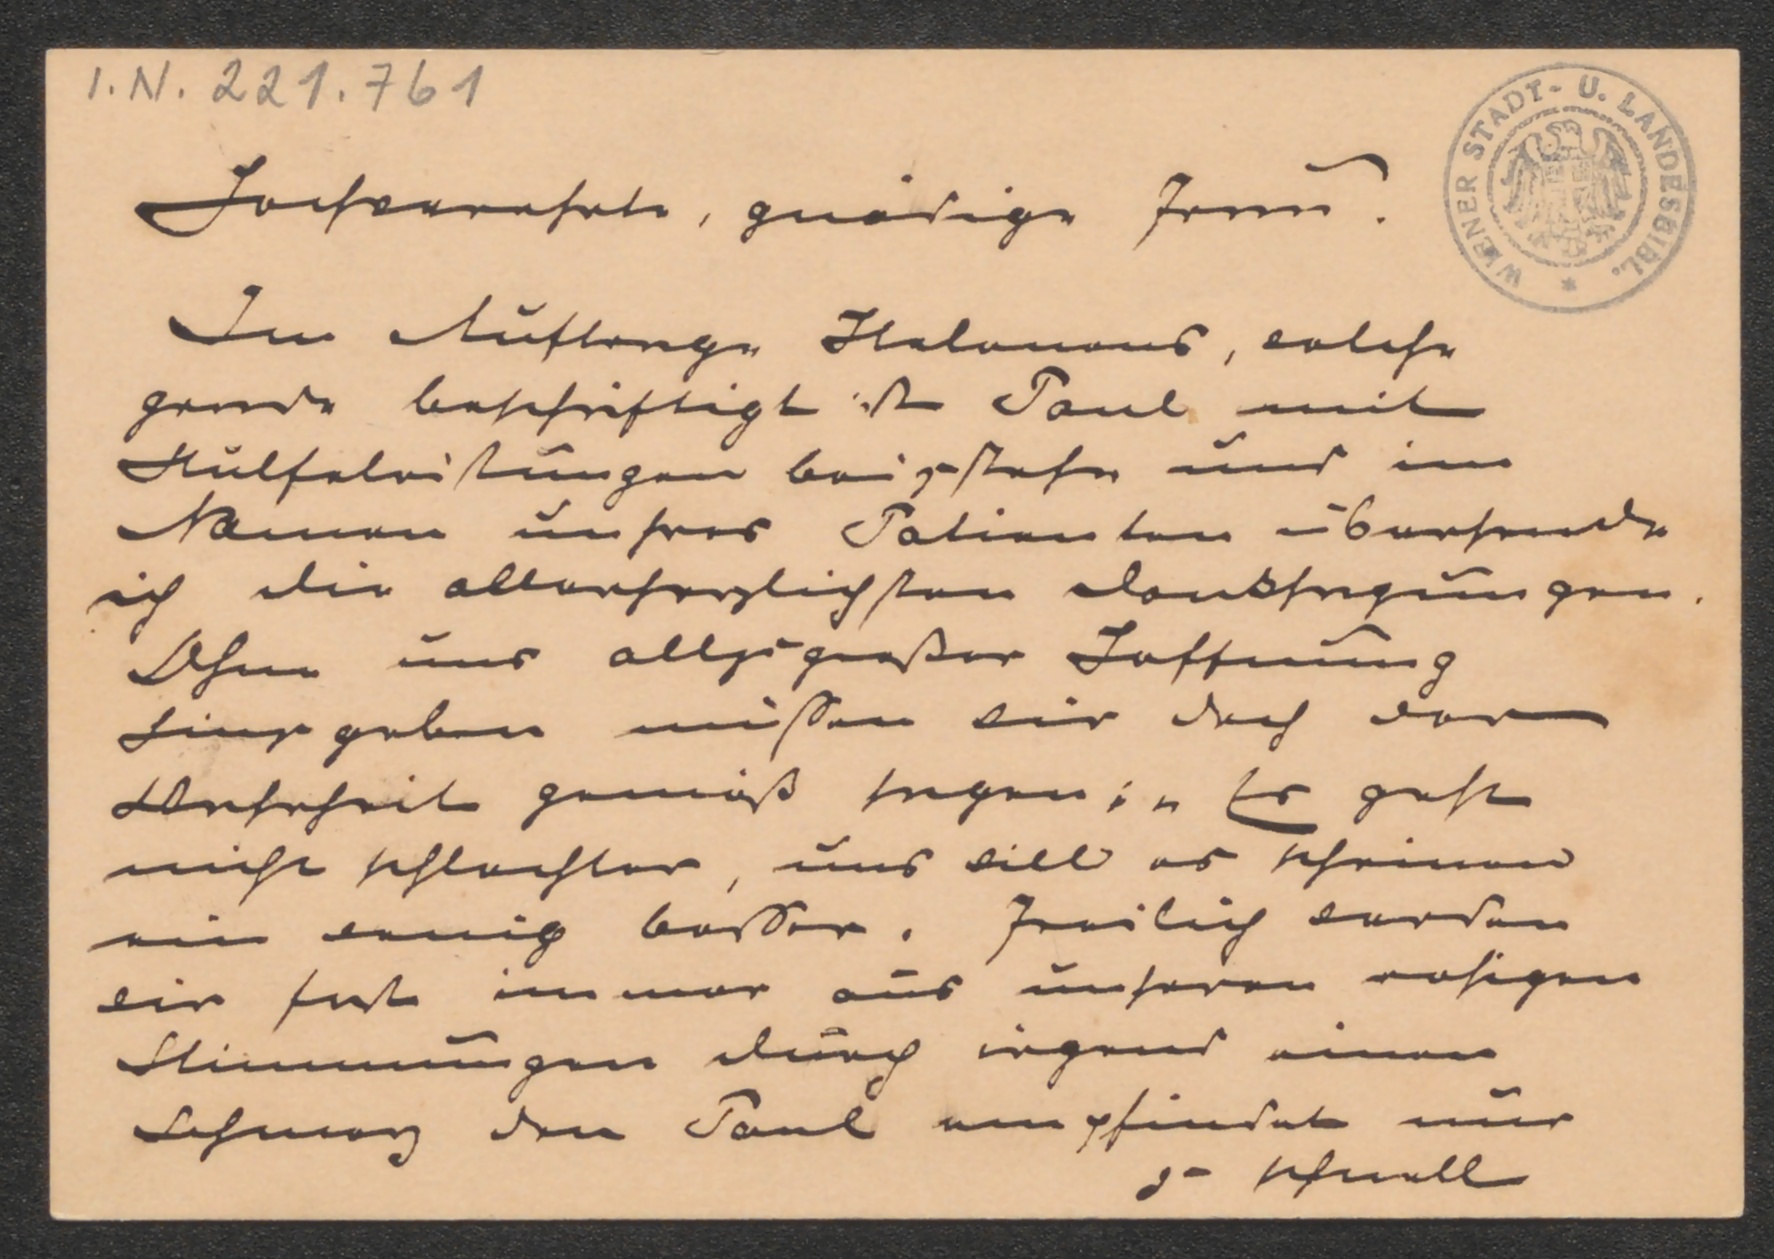 I.N. 221.761
WIENER STADT- U. LANDESBIBL. *
Hochverehrte, gnädige Frau.
Im Auftrage Helenens, welche
gerade beschäftigt ist Paul mit
Hülfeleistungen beizustehn und im
Namen unsres Patienten übersende
ich die allerherzlichsten Danksagungen.
Ohne uns allzugroßer Hoffnung
hinzugeben müssen wir doch der
Wahrheit gemäß sagen: „Es geht
nicht schlechter, uns will es scheinen
ein wenig besser. Freilich werden
wir fast immer aus unseren rosigen
Stimmungen durch irgend einen
Schmerz den Paul empfindet nur
zu schnell